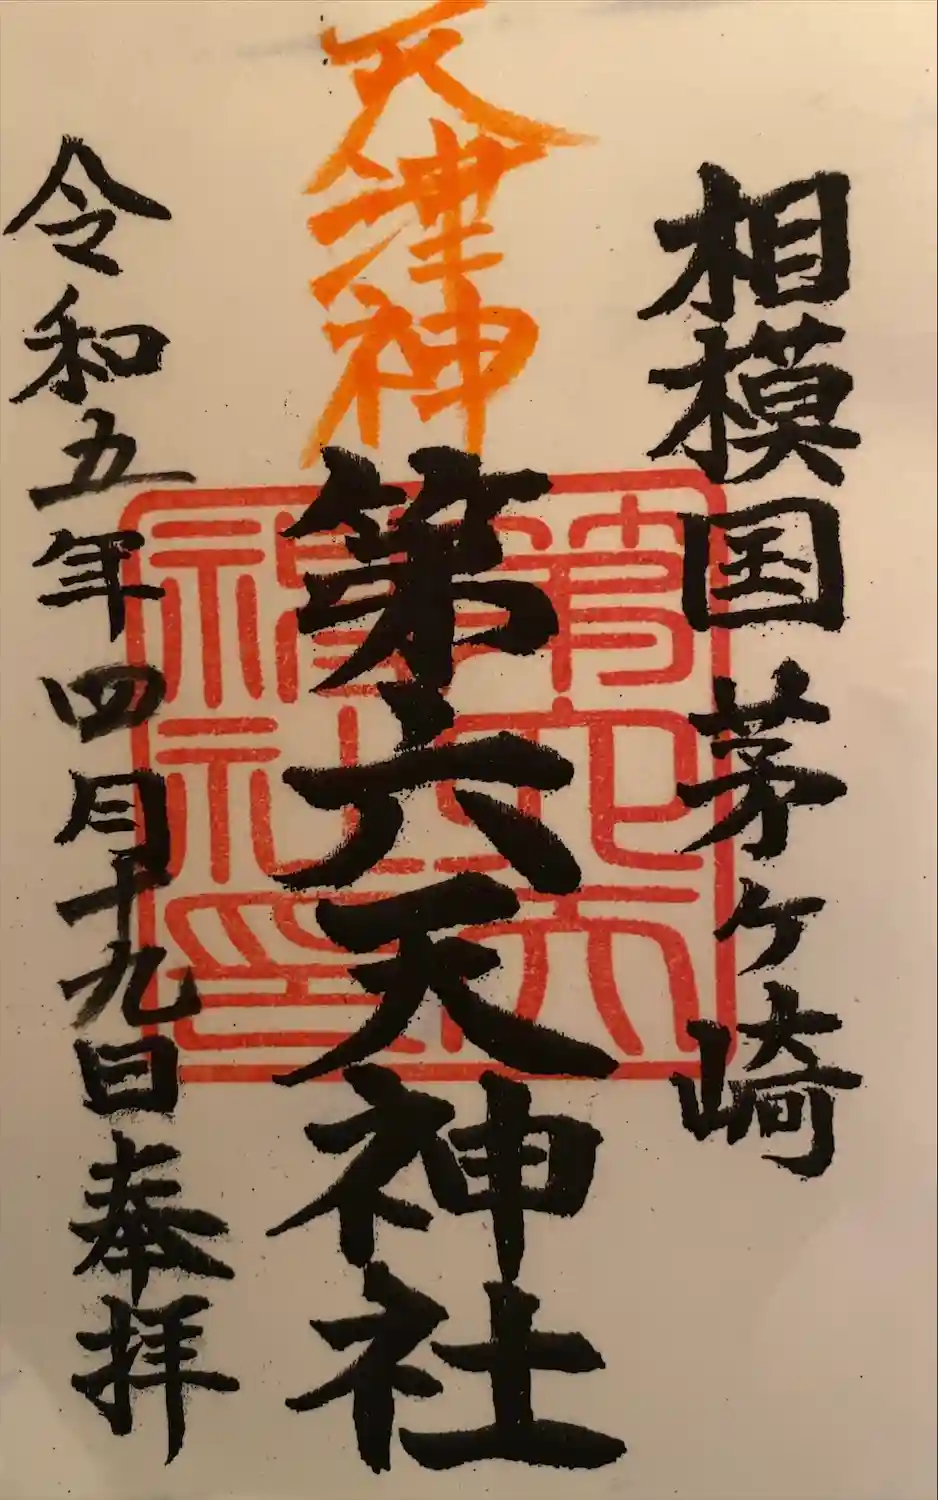 相模国茅ヶ崎
天津神
第六天神社
令和五年四月十九日奉拝